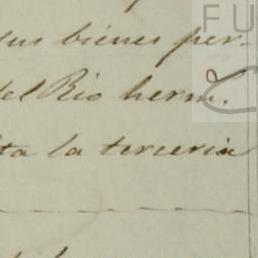 sus bienes per-
del Rio herm.
ta la terceria
FU